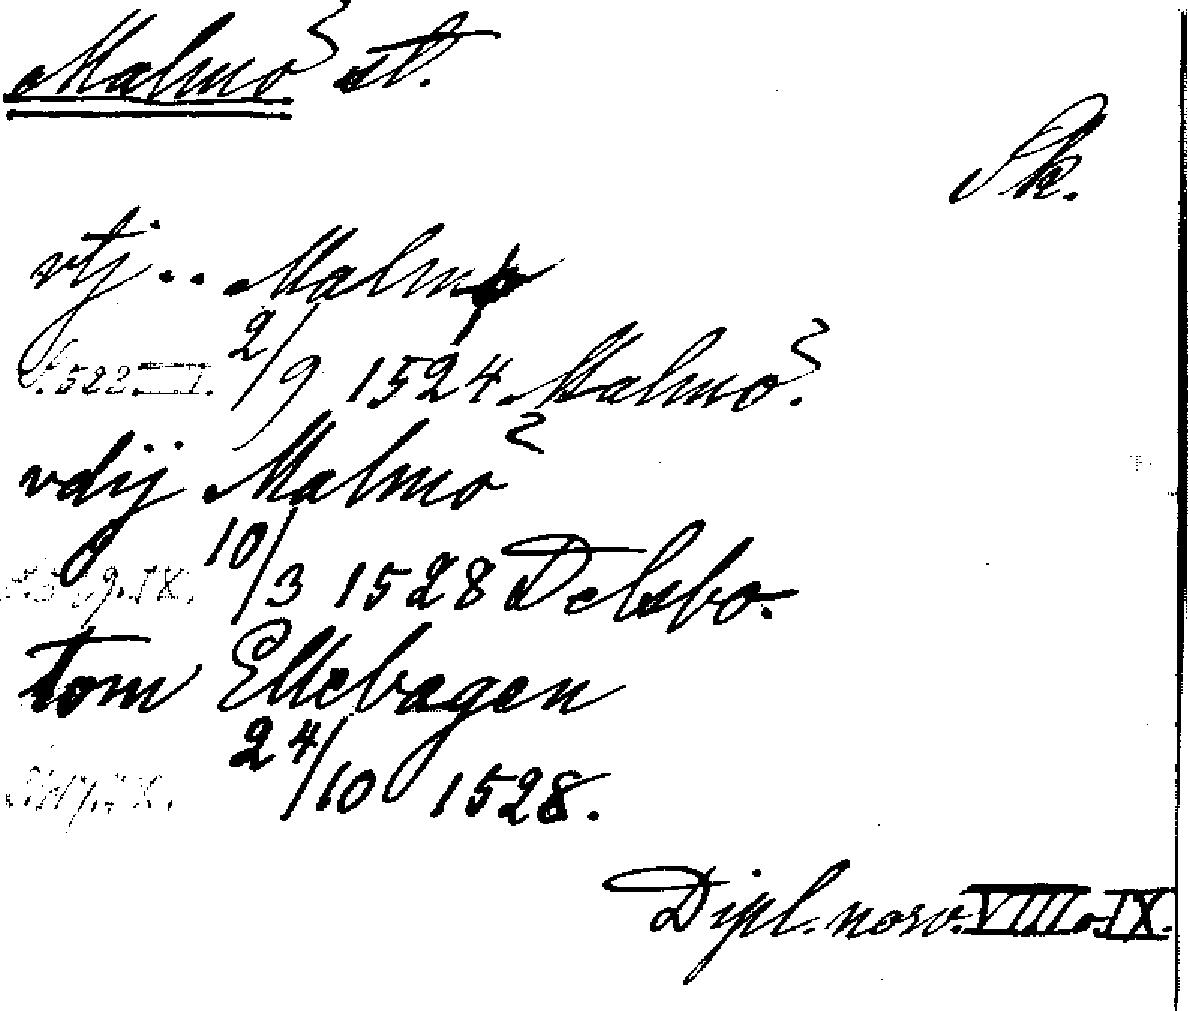 Malmö st.
Sk.
vtj .. Malmø
s. 522 VIII. 2/9 1524 Malmö.
vdij Malmö
IX. 10/3 1528 Delsbo.
tom Ellebagen
IX. 24/10 1528.
Dipl. norv. VIII o. IX.